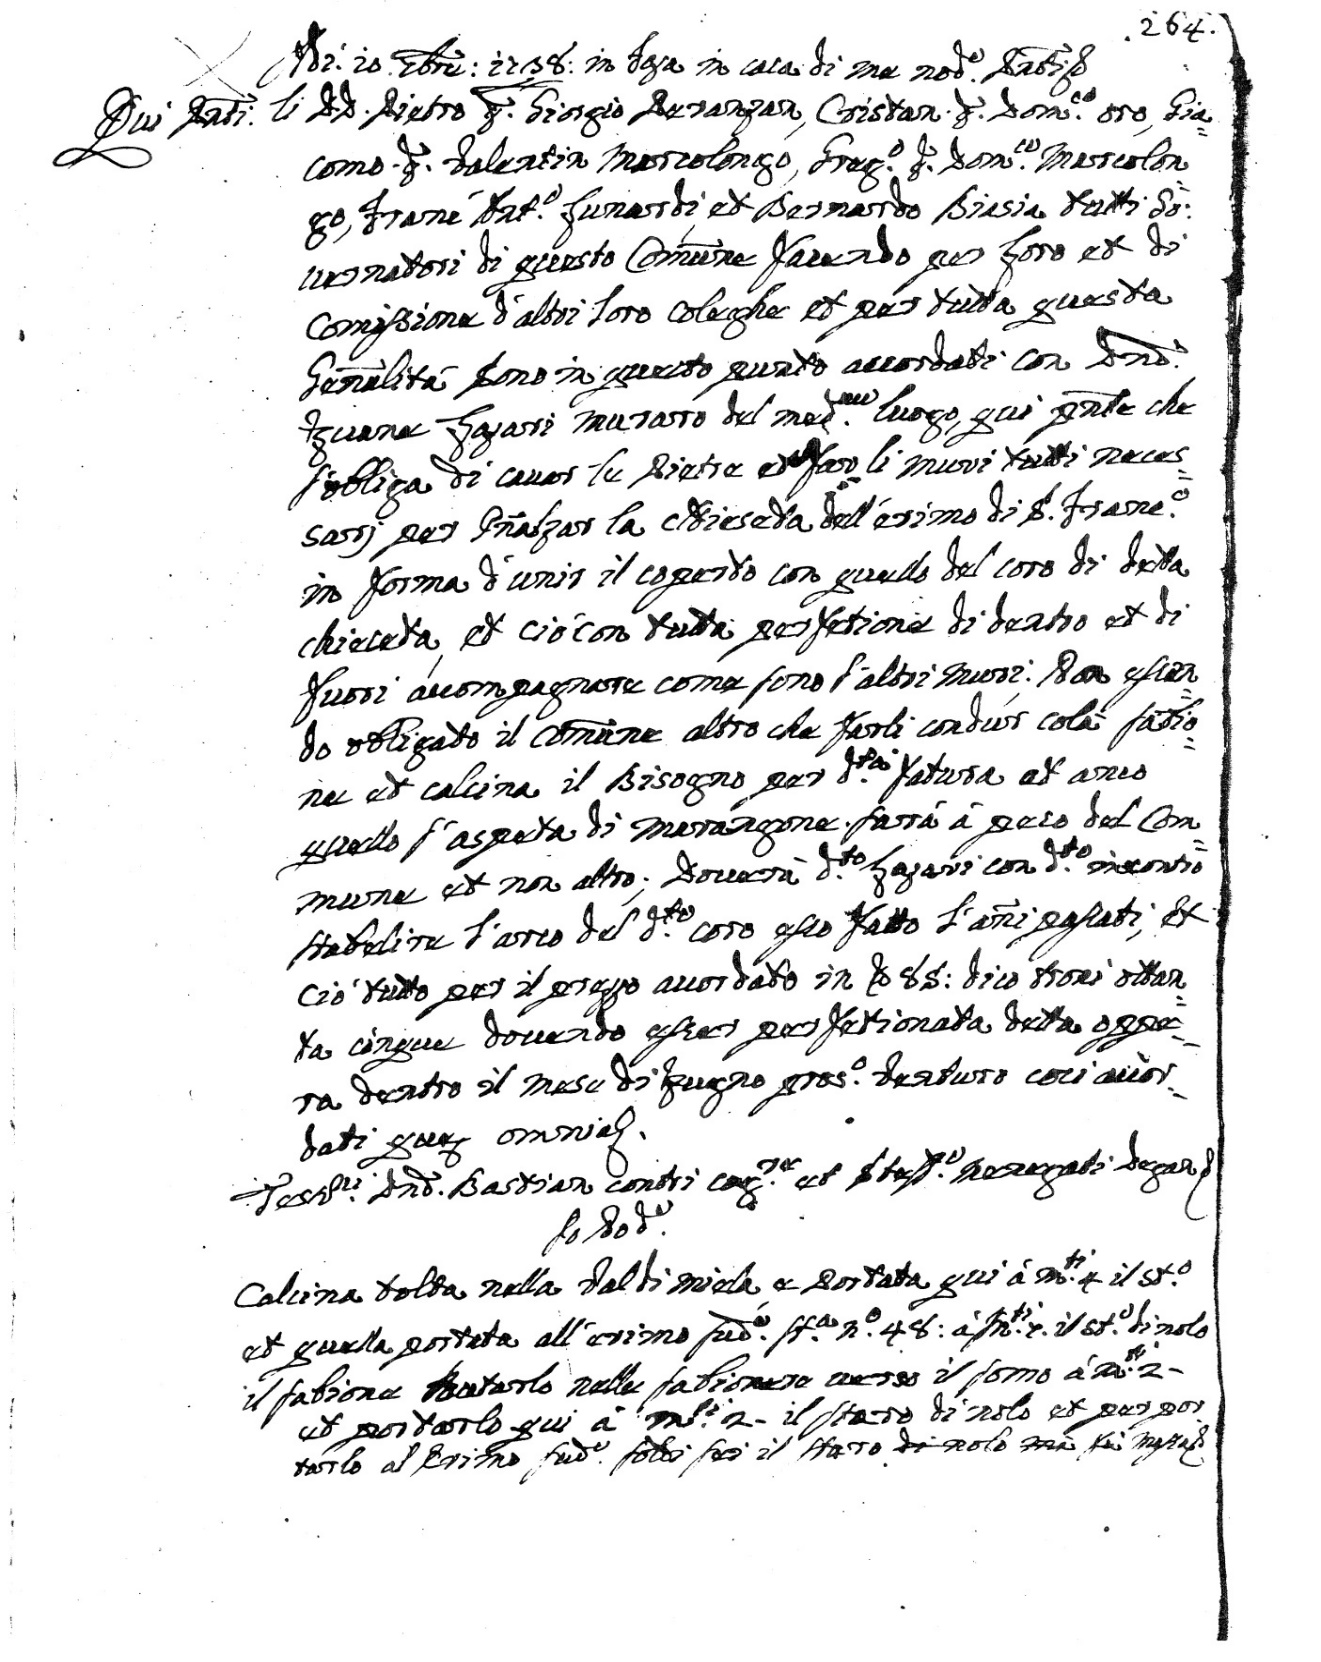 .264.
Adì: 10 Xbre: 1738: in Teza in casa di me nod.o
Qui Pnti. li DD. Pietro q. Giorgio Peranzan, Cristan q. Dom.co oro, Gia=
como q. Valentin Marcolongo, Greg.o q. Dom.co Marcolon
go, Franc.o Ant.o Lunardi, et Bernardo Biasia tutti Go:
uernatori di questo Comune facendo per loro et di
Comissione d'altri loro coleghe et per tutta questa
Genalità sono in questo punto acordati con Dno.
Zuane Lazari muraro del med.mo luogo, qui pnte che
s'obliga di cauar le Pietre et far li muri tutti neces=
sarj per Inalzar la chieseta dell'erimo di S. Franc.o
in forma d'unir il coperto con quello del coro di detta
chieseta, et ciò con tutta perfetione di dentro et di
fuori acompagnare come sono l'altri muri: Non essen=
do obligato il Comune altro che farli condur colà sabio=
ne et calcina il Bisogno per d.ta fatura et anco
quello s'aspeta di marangone sarrà à peso del Com=
mune et non altro; Douerà d.to Lazari con d.to incontro
stabelire l'arco del d.to coro esso fatto l'ani passati, et
ciò tutto per il prezzo acordato in L 85: dico troni ottan=
ta cinque douendo esser perfetionata detta oppe=
ra dentro il mese di Zugno pros.o venturo cosi acor=
dati omnia.
Test.ii Dno. Bastian contri et Stef.o Menegati Degan
so Nod.o
Calcina tolta nella Valdimiela, e portata qui à m.ti 4 il st.o
et quella portata all'erimo sud.o st.a n.o 48: à il st.o di nolo
il sabione Butarlo nelle uerso il à m.ti 2-
et portarlo qui à m.ti 2- il staro di nolo et per por
tarlo al Erimo sud.o soldi sei il staro di nolo